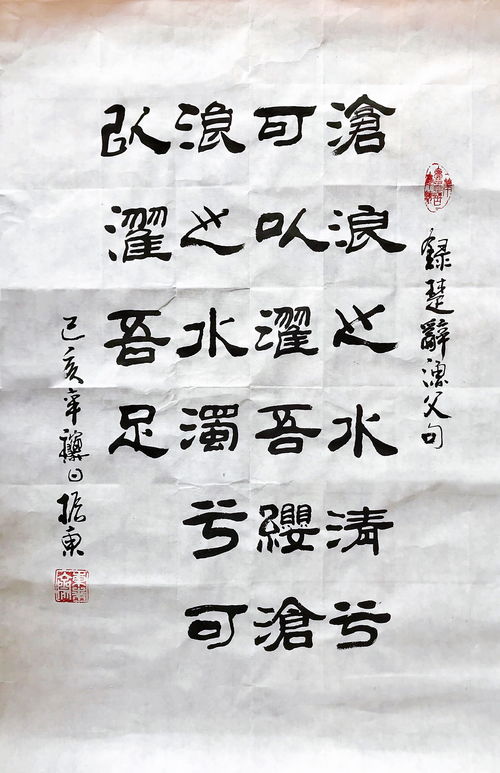 録楚辭漁父句
滄浪之水清兮
可以濯吾纓滄
浪之水濁兮可
以濯吾足
己亥年日振